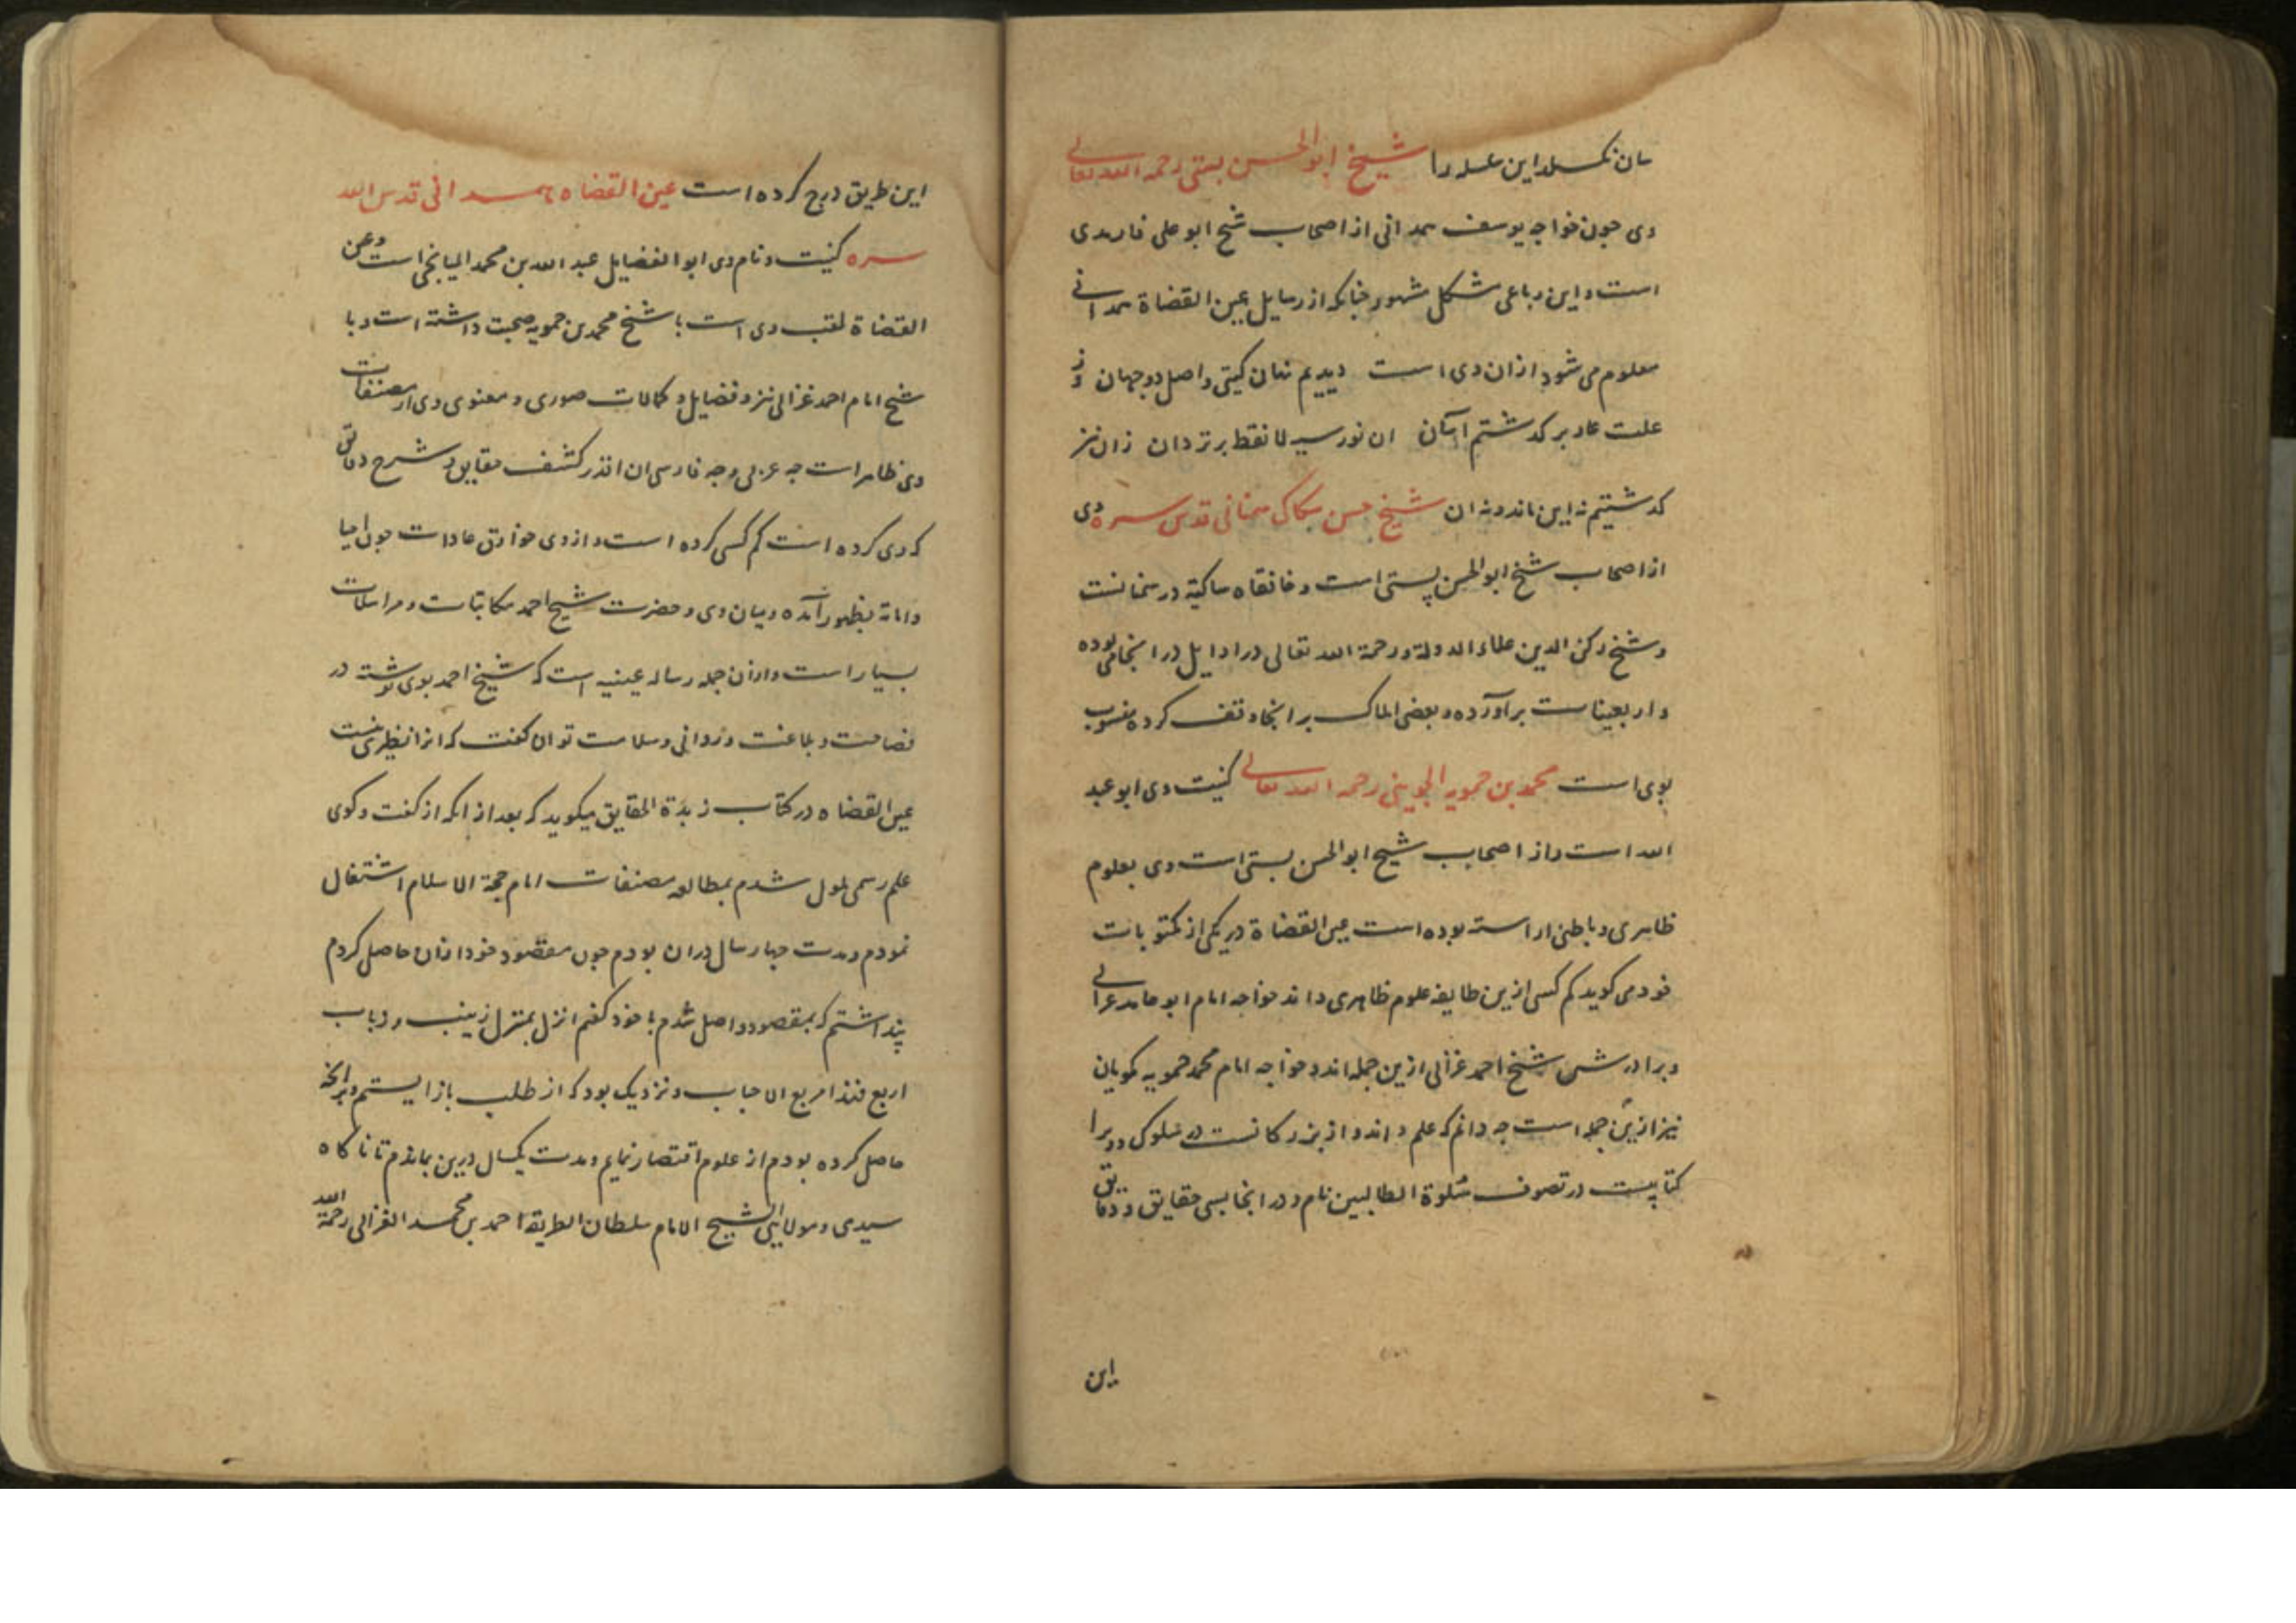 سان نگسلد این سلسله را شیخ ابوالحسن بستی رحمه الله تعالی
وی چون خواجه یوسف همدانی از اصحاب شیخ ابو علی فارمدی
است و این رباعی مشکل مشهور چنانکه از رسایل عین القضاة همدانی
معلوم می شود از ان وی است دیدیم نهان کیتی و اصل دو جهان وز
علت عار بر کدشتم آسان ان نور سیه ز لا نقط برتر دان زان نیز
کدشتیم نه این ماند و نه ان شیخ حسن سکاک سمنانی قدس سره وی
از اصحاب شیخ ابوالحسن بستی است و خانقاه سکاکیه در سمنانست
و شیخ رکن الدین علاء الدوله رحمة الله تعالی در اوایل در انجا می بوده
و اربعینات برآورده و بعضی املاک بر انجا وقف کرده منسوب
بوی است محمد بن حمویه الجوینی رحمه الله تعالی کنیت وی ابو عبد
الله است و از اصحاب شیخ ابوالحسن بستی است وی بعلوم
ظاهری و باطنی اراسته بوده است عین القضاة در یکی از مکتوبات
خود می کوید کم کسی ازین طایفه علوم ظاهری داند خواجه امام ابو حامد غزالی
و برادرش شیخ احمد غزالی ازین جمله اند و خواجه امام محمد حمویه کویان
نیز ازین جمله است چه دانم که علم داند و از بزرکانست در سلوک و ویرا
کتابیست در تصوف سلوة الطالبین نام و در انجا بسی حقایق و دقایق
این
این طریق درج کرده است عین القضاه همدانی قدس الله
سره کنیت و نام وی ابو الفضایل عبد الله بن محمد المیانجی است و عین
القضاة لقب وی است با شیخ محمد بن حمویه صحبت داشته است و با
شیخ امام احمد غزالی نیز و فضایل و کمالات صوری و معنوی وی از مصنفات
وی ظاهر است چه عربی و چه فارسی ان قدر کشف حقایق و شرح دقایق
که وی کرده است کم کسی کرده است و از وی خوارق عادات چون احیا
و اماته بظهور آمده و میان وی و حضرت شیخ احمد مکاتبات و مراسلات
بسیار است و از ان جمله رساله عینیه است که شیخ احمد بوی نوشته در
فصاحت و بلاغت و روانی و سلاست توان کفت که انرا نظیری نیست
عین القضاه در کتاب زبدة الحقایق میکوید که بعد از انکه از کفت و کوی
علم رسمی ملول شدم بمطالعه مصنفات امام حجة الاسلام اشتغال
نمودم و مدت چهار سال در ان بودم چون مقصود خود از ان حاصل کردم
پنداشتم که بمقصود واصل شدم با خود کفتم انزل بمنزل زینب و رباب
اربع فهذا مربع الاحباب و نزدیک بود که از طلب باز ایستم و بر انچه
حاصل کرده بودم از علوم اقتصار نمایم و مدت یکسال درین بماندم تا ناکاه
سیدی و مولایی الشیخ الامام سلطان الطریقة احمد بن محمد الغزالی رحمة الله